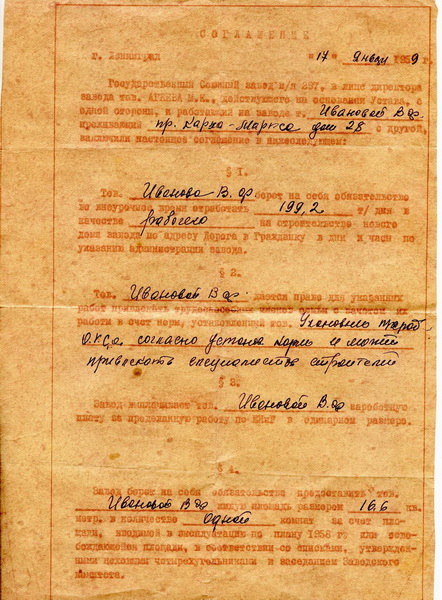 СОГЛАШЕНИЕ
г. Ленинград "17" января 1959 г
Государственный Союзный завод п/я 287, в лице директора
завода тов. АГЕЕВА В.К., действующего на основании Устава, с
одной стороны, и работающий на заводе т. Ивановой В Ф.
проживающий пр. Карла-Маркса дом 28 с другой,
заключили настоящее соглашение в нижеследующем:
§ 1.
Тов. Иванова В. Ф берет на себя обязательство
во внеурочное время отработать 199,2 т/дня в
качестве рабочего на строительстве нового
дома завода по адресу Дорога в Гражданку в дни и часы по
указанию администрации завода.
§ 2.
Тов. Ивановой В Ф. дается право для указанных
работ привлекать трудоспособных членов с зачетом их
работы в счет норм, установленной тов.
согласно и может
привлекать специалистов строителей
§ 3.
Завод выплачивает тов. Ивановой В. Ф заработную
плату за проделанную работу по ЕНиР в одинарном размере.
§ 4.
Завод берет на себя обязательство предоставить тов.
Ивановой В Ф жилую площадь размером 16,6 кв.
метр. в количестве одной комнат за счет пло-
щади, вводимой в эксплуатацию по плану 1958 г. или осво-
бождаемой площади, в соответствии со списками, утвержден-
ными цеховыми четырехугольниками и заседанием Заводского
комитета.